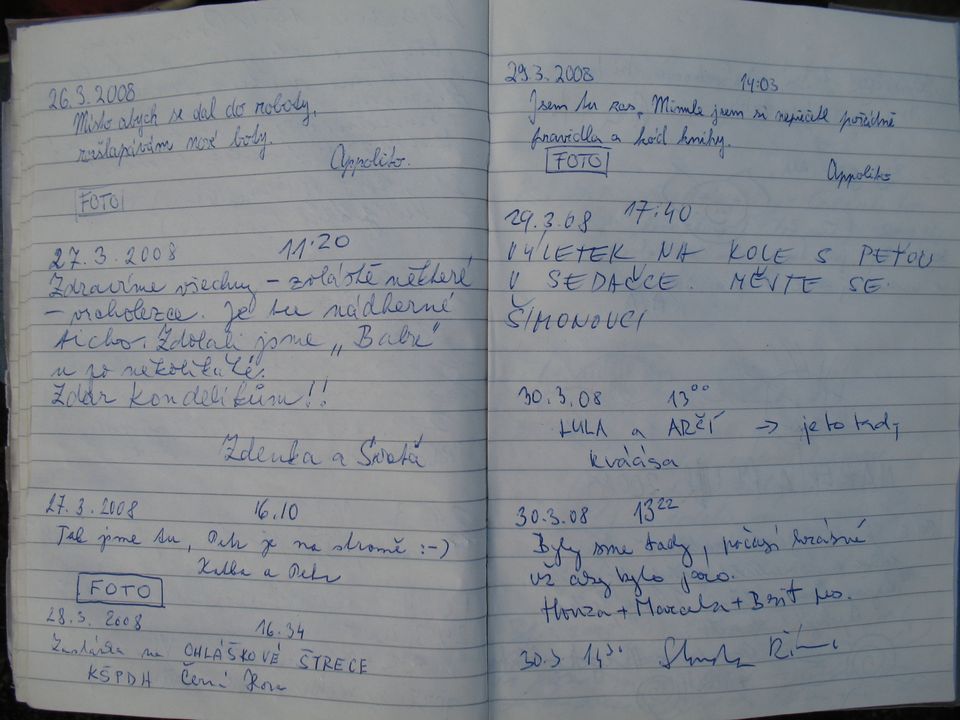 26.3.2008
Místo abych se dal do roboty,
rozšlapávám nové boty.
Appolito.
FOTO
27.3.2008 11:20
Zdravíme všechny – zvláště některé
– vrcholezce. Je tu nádherné
ticho. Zdolali jsme „Babu"
u po několikáté.
Zdar Kondelíkům!!
Zdenka a Světa
27.3.2008 16.10
Tak jsme tu, Petr je na stromě :-)
a Petr
FOTO
28.3.2008 16.34
Zastávka na OHLÁŠKOVÉ ŠTRECE
KŠPDH Černá Hora
29.3.2008 14:03
Jsem tu zas, Minule jsem si nepřečetl pořádně
pravidla a kód knihy.
FOTO
Appolito
29.3.08 17:40
VÝLETEK NA KOLE S PEŤOU
V SEDAČCE. MĚJTE SE.
ŠIMONOVCI
30.3.08 13⁰⁰
LULA a ARČÍ → je to tady
kváása
30.3.08 13²²
Byly sme tady, počasí krásné
už aby bylo jaro.
Honza + Marcela + Brit
30.3 14